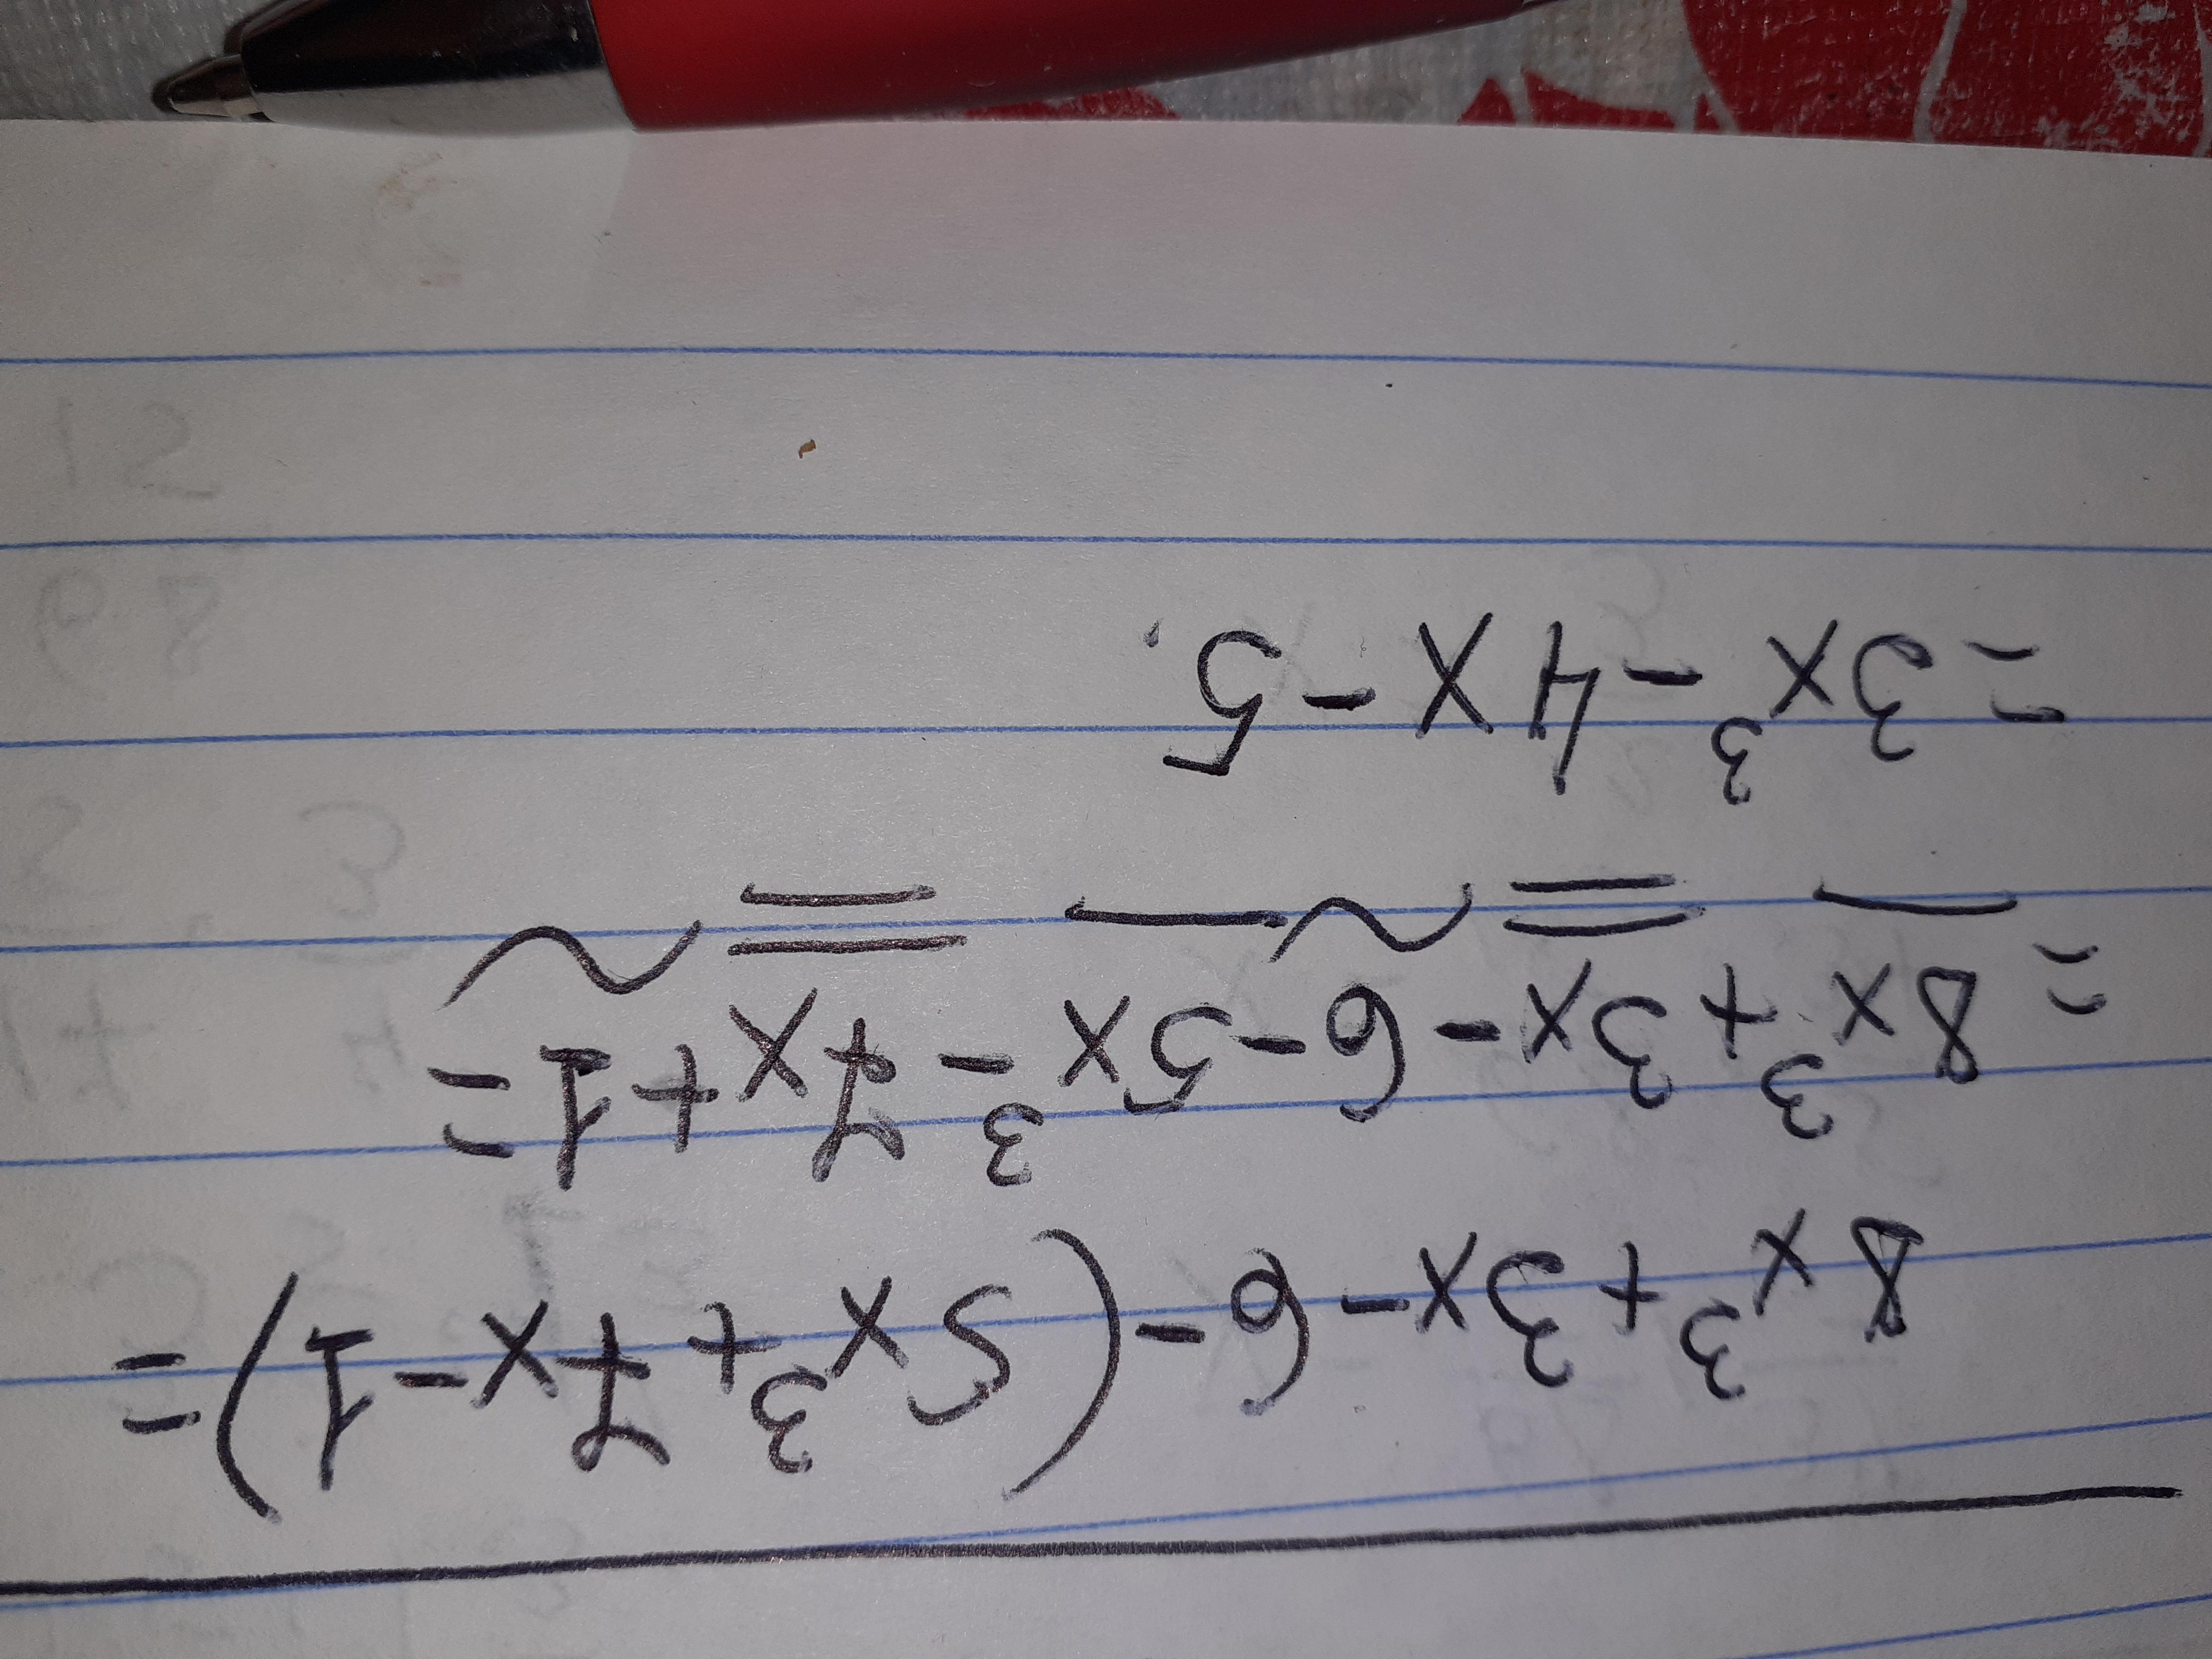 8x³+3x-6-(5x³+7x-1)=
=8x³+3x-6-5x³-7x+1=
=3x³-4x-5.